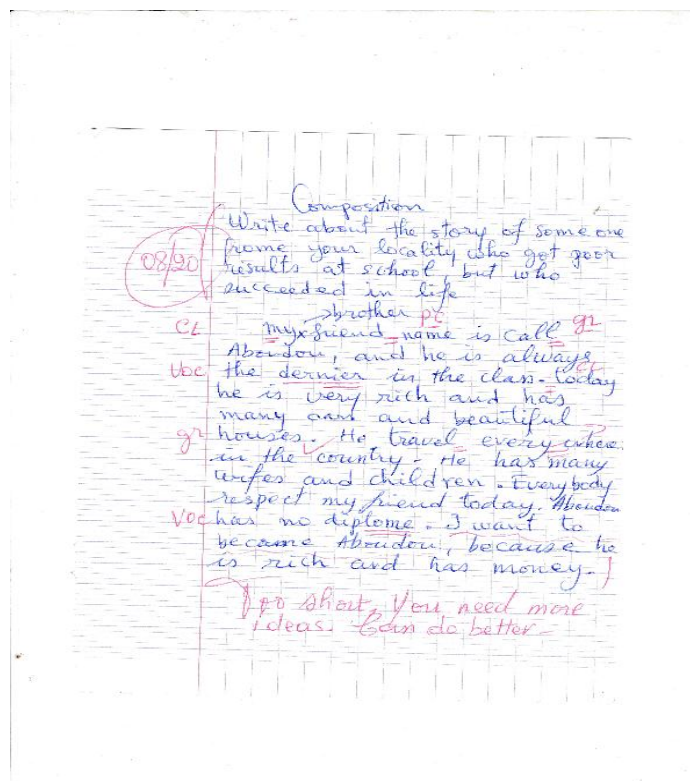 Composition
Write about the story of some one
frome your locality who got poor
08/20
results at school, but who
succeeded in life
brother pc
CL my friend name is call gr
Aboudou, and he is always
Voc the dernier in the class. today
he is very rich and has
many cars and beautiful
gr houses. He travel every where
in the country. He has many
wifes and children. Everybody
respect my friend today. Aboudou
Voc has no diplome. I want to
became Aboudou, because he
is rich and has money.
Too short, You need more
ideas. Can do better